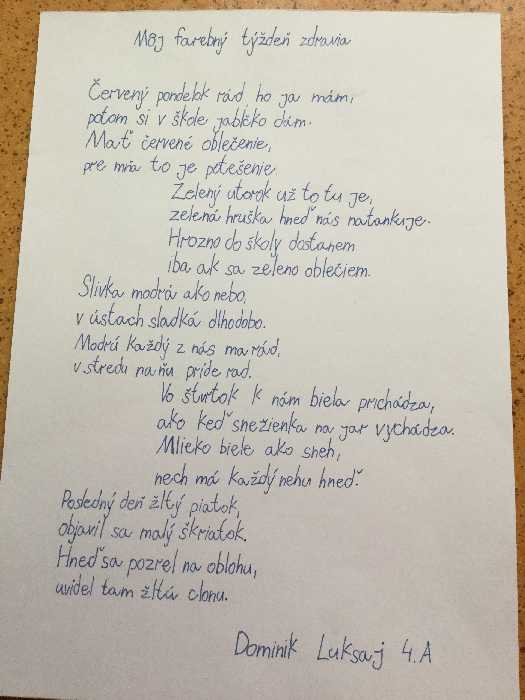 Môj farebný týždeň zdravia
Červený pondelok rád ho ja mám,
potom si v škole jabĺčko dám.
Mať červené oblečenie,
pre mňa to je potešenie.
Zelený utorok už to tu je,
zelená hruška hneď nás natankuje.
Hrozno do školy dostanem
iba ak sa zeleno oblečiem.
Slivka modrá ako nebo,
v ústach sladká dlhodobo.
Modrú každý z nás ma rád,
v stredu na ňu príde rad.
Vo štvrtok k nám biela prichádza,
ako keď snežienka na jar vychádza.
Mlieko biele ako sneh,
nech má každý nehu hneď.
Posledný deň žltý piatok,
objavil sa malý škriatok.
Hneď sa pozrel na oblohu,
uvidel tam žltú clonu.
Dominik Luksaj 4.A